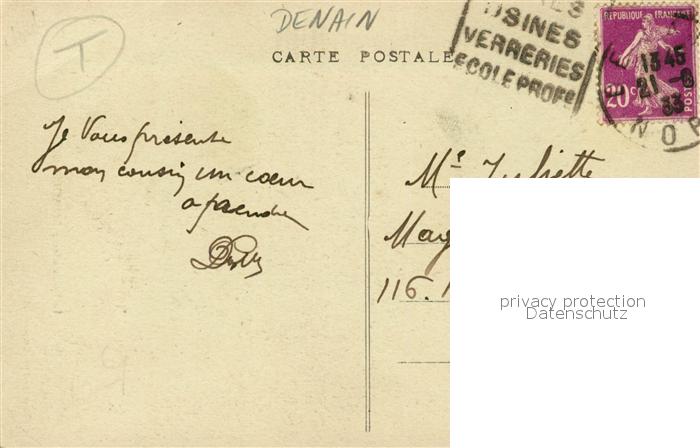 DENAIN
T
CARTE POSTALE
USINES
VERRERIES
ECOLE PROFE
REPUBLIQUE FRANÇAISE
20c
POSTES
13 45
21 -
33
NOR
Je Vous présente
mon cousin un cœur
a prendre
Mle Juliette
Mag
116. 
privacy protection
Datenschutz